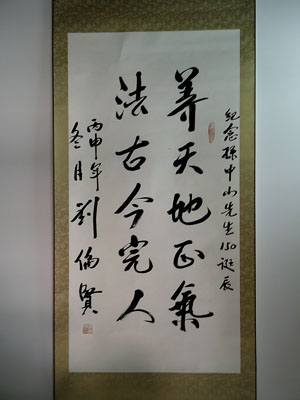 纪念孙中山先生150诞辰
养天地正氣
法古今完人
丙申年
冬月劉倫賢